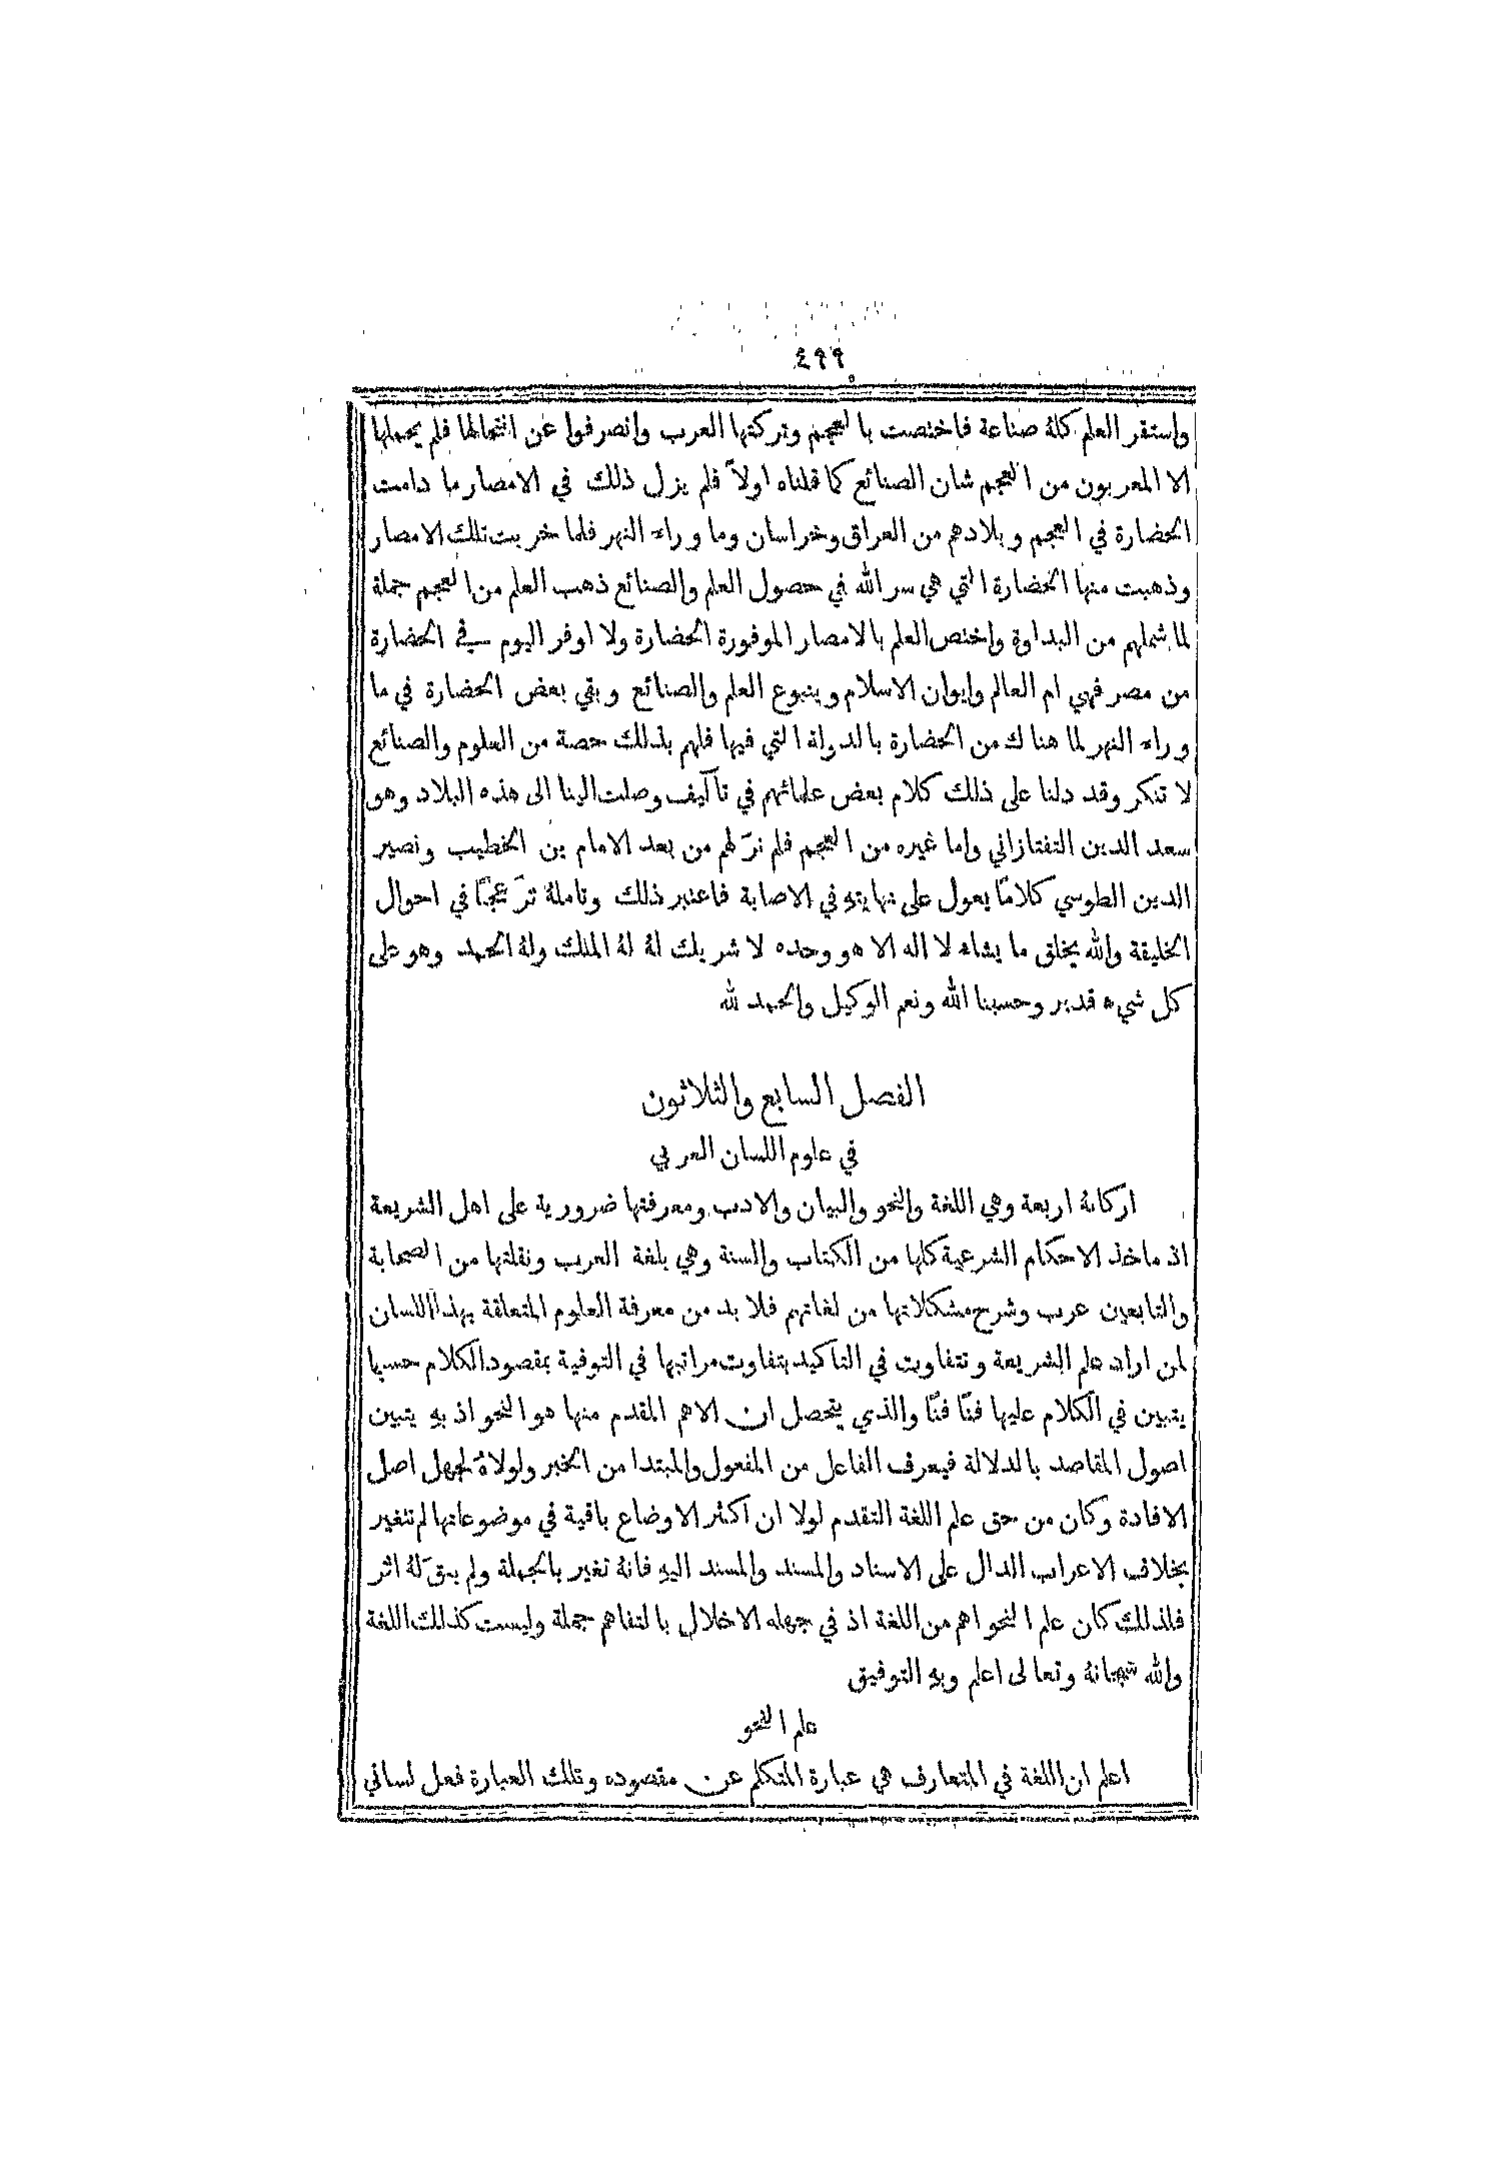 ٤٩٩
واستقر العلم كلهُ صناعة فاختصت بالعجم وتركتها العرب وانصرفوا عن انتحالها فلم يحملها
الا المعربون من العجم شان الصنائع كما قلناه اولاً فلم يزل ذلك في الامصار ما دامت
الحضارة في العجم وبلادهم من العراق وخراسان وما وراء النهر فلما خربت تلك الامصار
وذهبت منها الحضارة التي هي سر الله في حصول العلم والصنائع ذهب العلم من العجم جملة
لما شملهم من البداوة واختص العلم بالامصار الموفورة الحضارة ولا اوفر اليوم في الحضارة
من مصر فهي ام العالم وايوان الاسلام وينبوع العلم والصنائع وبقي بعض الحضارة في ما
وراء النهر لما هناك من الحضارة بالدولة التي فيها فلهم بذلك حصة من العلوم والصنائع
لا تنكر وقد دلنا على ذلك كلام بعض علمائهم في تآليف وصلت الينا الى هذه البلاد وهو
سعد الدين التفتازاني واما غيره من العجم فلم نرَ لهم من بعد الامام بن الخطيب ونصير
الدين الطوسي كلامًا يعول على نهايتهِ في الاصابة فاعتبر ذلك وتاملهُ ترَ عجبًا في احوال
الخليقة والله يخلق ما يشاء لا اله الا هو وحده لا شريك لهُ لهُ الملك ولهُ الحمد وهو على
كل شيء قدير وحسبنا الله ونعم الوكيل والحمد لله
الفصل السابع والثلاثون
في علوم اللسان العربي
اركانهُ اربعة وهي اللغة والنحو والبيان والادب ومعرفتها ضرورية على اهل الشريعة
اذ ماخذ الاحكام الشرعية كلها من الكتاب والسنة وهي بلغة العرب ونقلتها من الصحابة
والتابعين عرب وشرح مشكلاتها من لغاتهم فلا بد من معرفة العلوم المتعلقة بهذا اللسان
لمن اراد علم الشريعة وتتفاوت في التاكيد بتفاوت مراتبها في التوفية بمقصود الكلام حسبما
يتبين في الكلام عليها فنًا فنًا والذي يتحصل ان الاهم المقدم منها هو النحو اذ بهِ يتبين
اصول المقاصد بالدلالة فيعرف الفاعل من المفعول والمبتدا من الخبر ولولاهُ لجهل اصل
الافادة وكان من حق علم اللغة التقدم لولا ان اكثر الاوضاع باقية في موضوعاتها لم تتغير
بخلاف الاعراب الدال على الاسناد والمسند والمسند اليهِ فانهُ تغير بالجملة ولم يبقَ لهُ اثر
فلذلك كان علم النحو اهم من اللغة اذ في جهله الاخلال بالتفاهم جملة وليست كذلك اللغة
والله سبحانهُ وتعالى اعلم وبهِ التوفيق
علم النحو
اعلم ان اللغة في المتعارف هي عبارة المتكلم عن مقصوده وتلك العبارة فعل لساني